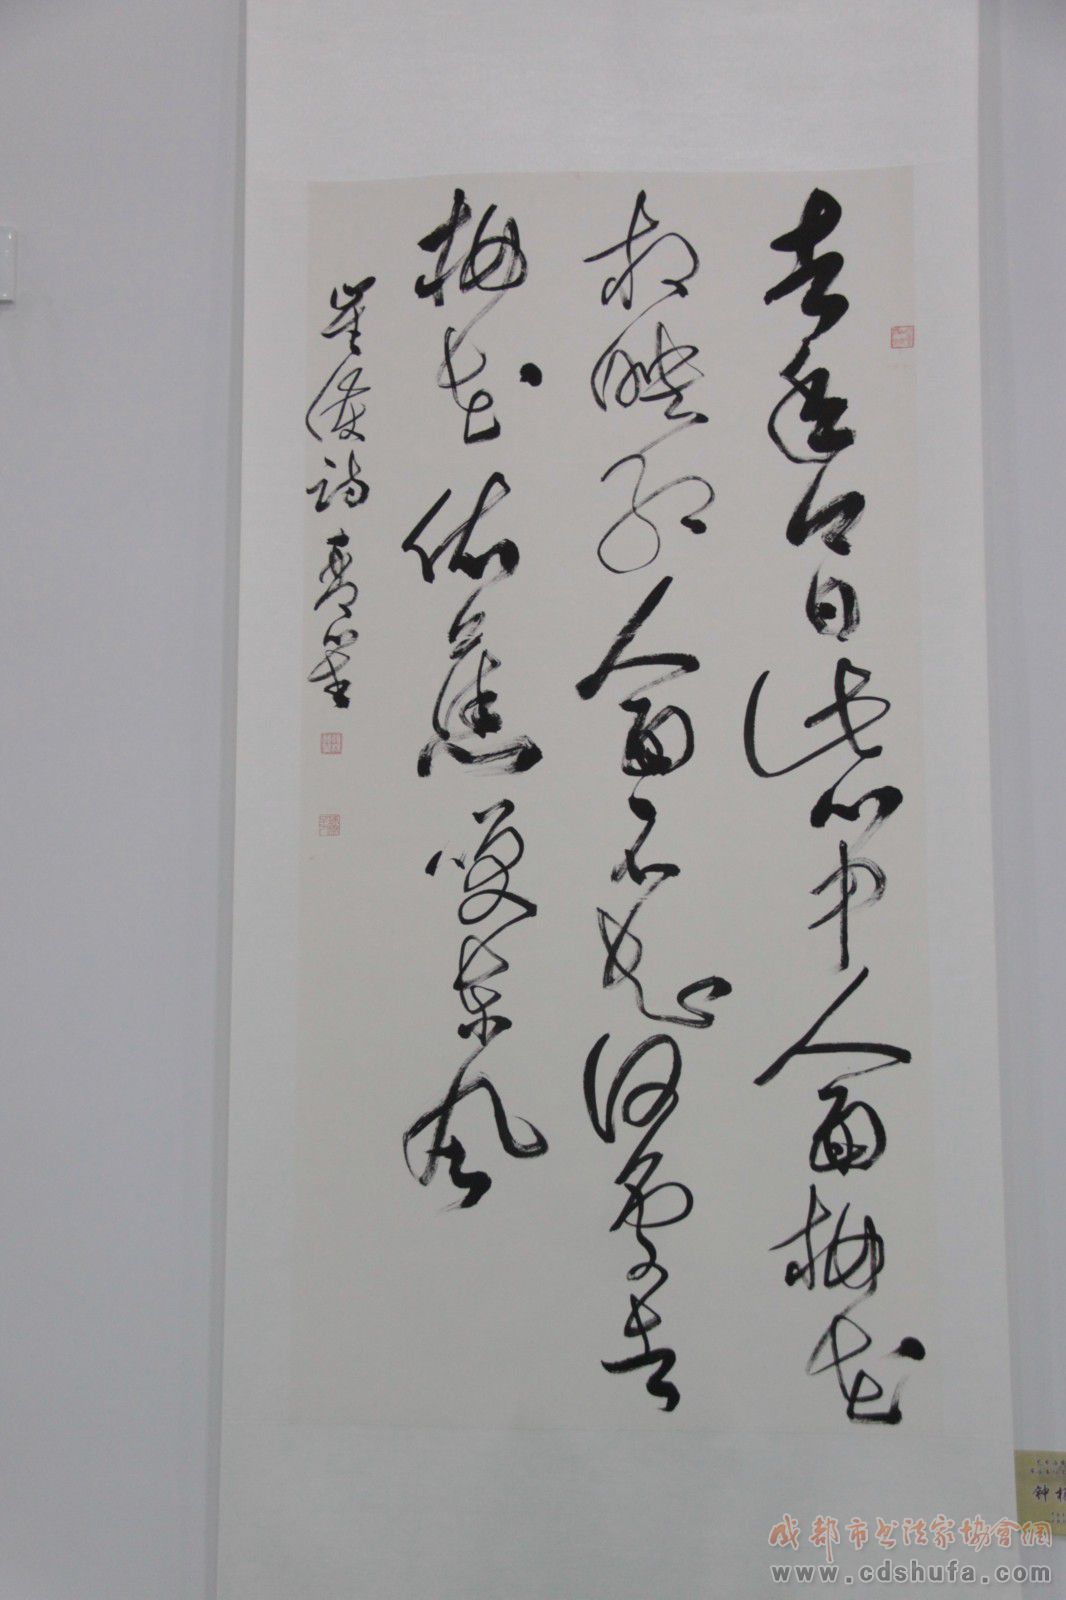 去年今日此門中人面桃花
相映紅人面不知何處去
桃花依舊笑春風
崔護詩
钟
成都市书法家協會網
www.cdshufa.com